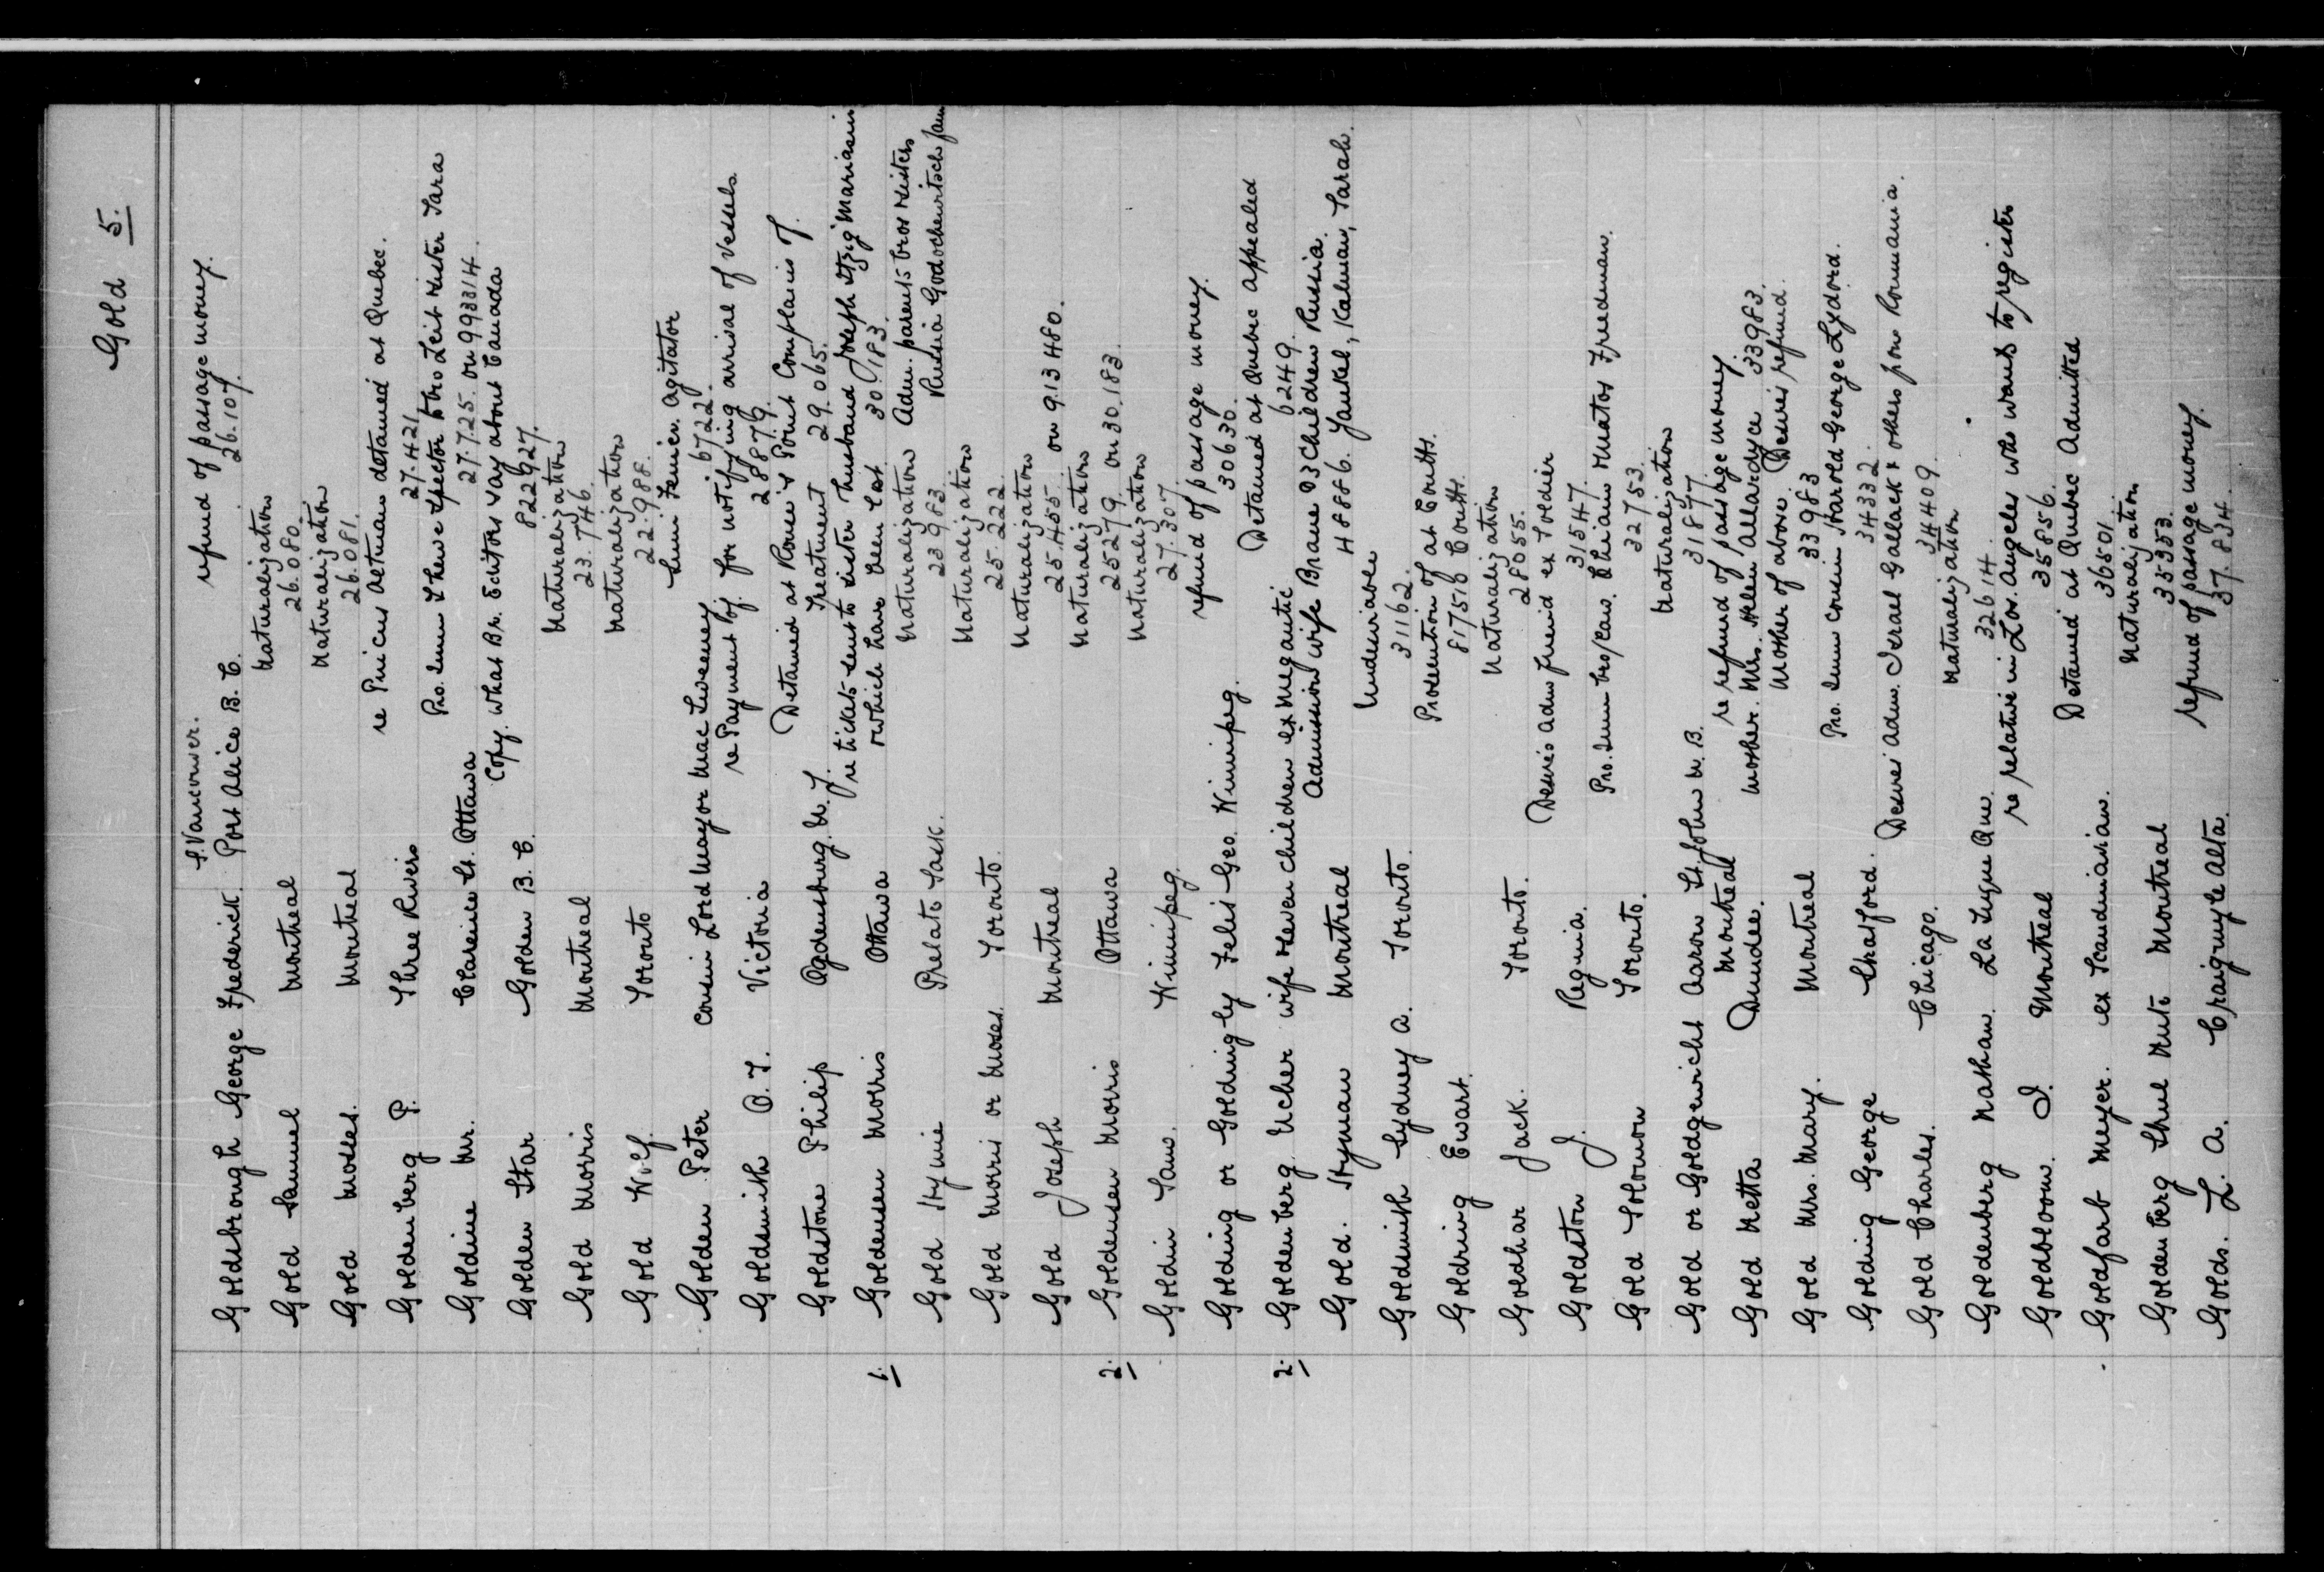 Gold 5.
S. Vancouver.
Goldsbrough George Frederick. Port Alice B. C. refund of passage money. 26.107.
Gold Samuel Montreal Naturalization 26.080.
Gold Moses. Montreal Naturalization 26.081.
Goldenberg P. Three Rivers re Pincus detained at Quebec. 27.421
Goldine Mr. Clarence St. Ottawa Pro. Imm Sister Sara 27.725. on 993314.
Golden Star Golden B. C. Copy. What Br. Editors say about Canada 822927.
Gold Morris Montreal Naturalization 23.746.
Gold Wolf. Toronto Naturalization 22.988.
Golden Peter cousin Lord Mayor MacSweeney agitator 6722.
Goldsmith A. T. Victoria re Payment for notifying arrival of vessels 28879.
Goldstone Philip Ogdensburg. N. Y. Detained at Rouse's Point Complains of Treatment 29.065.
1. Goldensen Morris Ottawa re tickets sent to sister husband Joseph Itzig Mariasin which have been lost 30.183.
Gold Stymie Prelate Sask. Naturalization 23983. Adm. parents bros sisters Russia
Gold Morris or Moses. Toronto. Naturalization 25.222.
Gold Joseph Montreal Naturalization 25.455. on 913480.
2. Goldensen Morris Ottawa Naturalization 25279. on 30.183.
Goldin Sam. Winnipeg. Naturalization 27.307.
Golding or Goldingly Felis Geo. Winnipeg. refund of passage money. 30630.
2. Goldenberg. Ucher wife seven children ex Megantic Detained at Quebec appealed 6249.
Gold. Styman Montreal Admission wife Brane & 3 children Russia. 48886. Yankel, Kalman, Sarah.
Goldsmith Sydney A. Toronto. Undesirable 31162.
Goldring Ewart. Prosecution of at Coutts. 817516 Coutts.
Goldhar Jack. Toronto. Naturalization 28055.
Goldston J. Regina. Desires adm friend ex Soldier 31547.
Gold Solomon Toronto. Pro. Imm bro/caus. Chaim Friedman. 32753.
Gold or Goldgewicht Aaron St. John N. B. Naturalization 31877.
Gold Netta Montreal Dundee. re refund of passage money. mother. Mrs. Helen Allardyce 33983.
Gold Mrs. Mary. Montreal Mother of above. Desires refund. 33983
Golding George Shatford. Pro. Imm cousin Harold George Lydford. 34332.
Gold Charles. Chicago. Desires adm. Israel Gallack & others from Roumania. 34409.
Goldenberg Nathan. La Tuque Que. Naturalization 32614.
Goldbloom. I. Montreal re relative in Los. Angeles who wants to register 35856.
Goldfarb Meyer. ex Scandinavian. Detained at Quebec Admitted 36501.
Goldenberg Shul Montreal Naturalization 35353.
Golds. L. A. Craigmyle Alta. refund of passage money. 37.834.